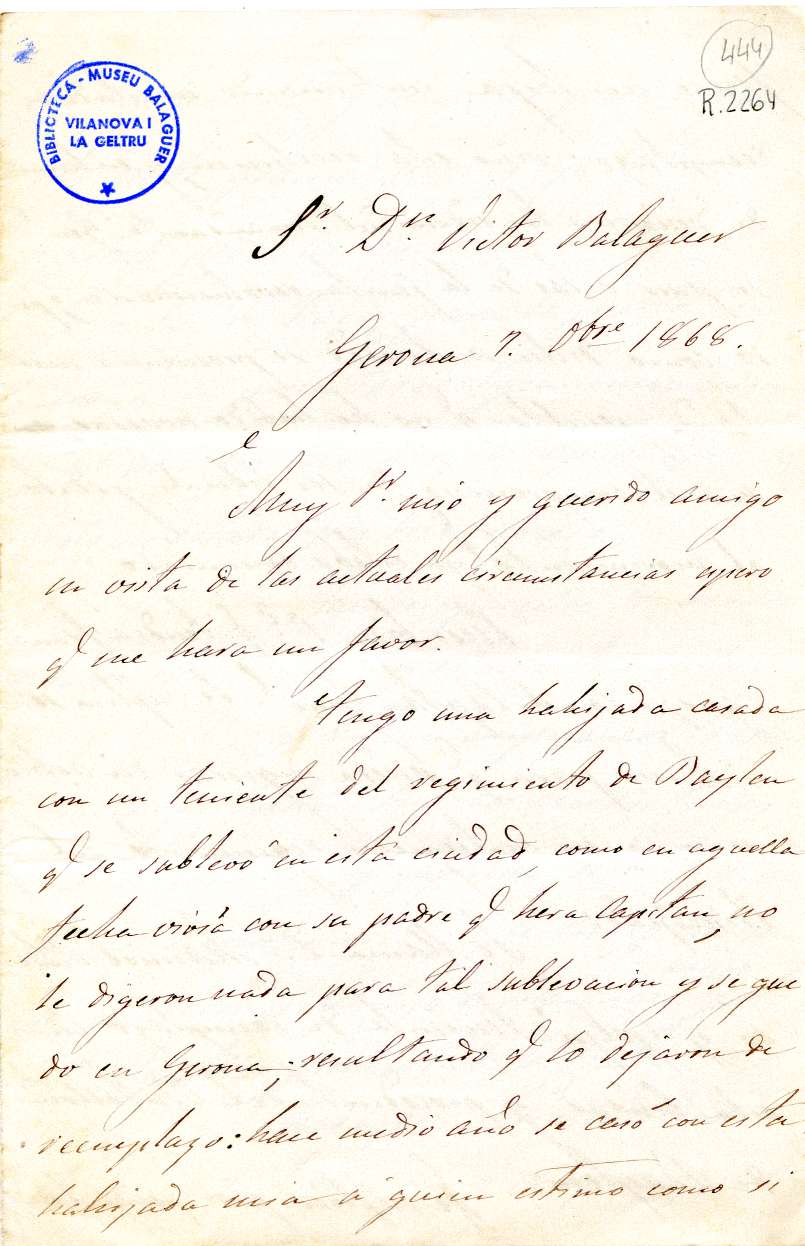 444
R.2264
BIBLIOTECA - MUSEU BALAGUER
VILANOVA I
LA GELTRU
Sr. Dn. Victor Balaguer
Gerona 7. Obre 1868.
Muy Sr. mio y querido amigo
en vista de las actuales circunstancias espero
q me hara un favor.
tengo una hahijada casada
con un teniente del regimiento de Baylen
q se sublevó en ésta ciudad, como en aquella
fecha vivia con su padre q hera Capitan, no
le digeron nada para tal sublevacion y se que
do en Gerona; resultando q lo dejaron de
reemplazo: hace medio año se casó con esta
hahijada mia á quien estimo como si